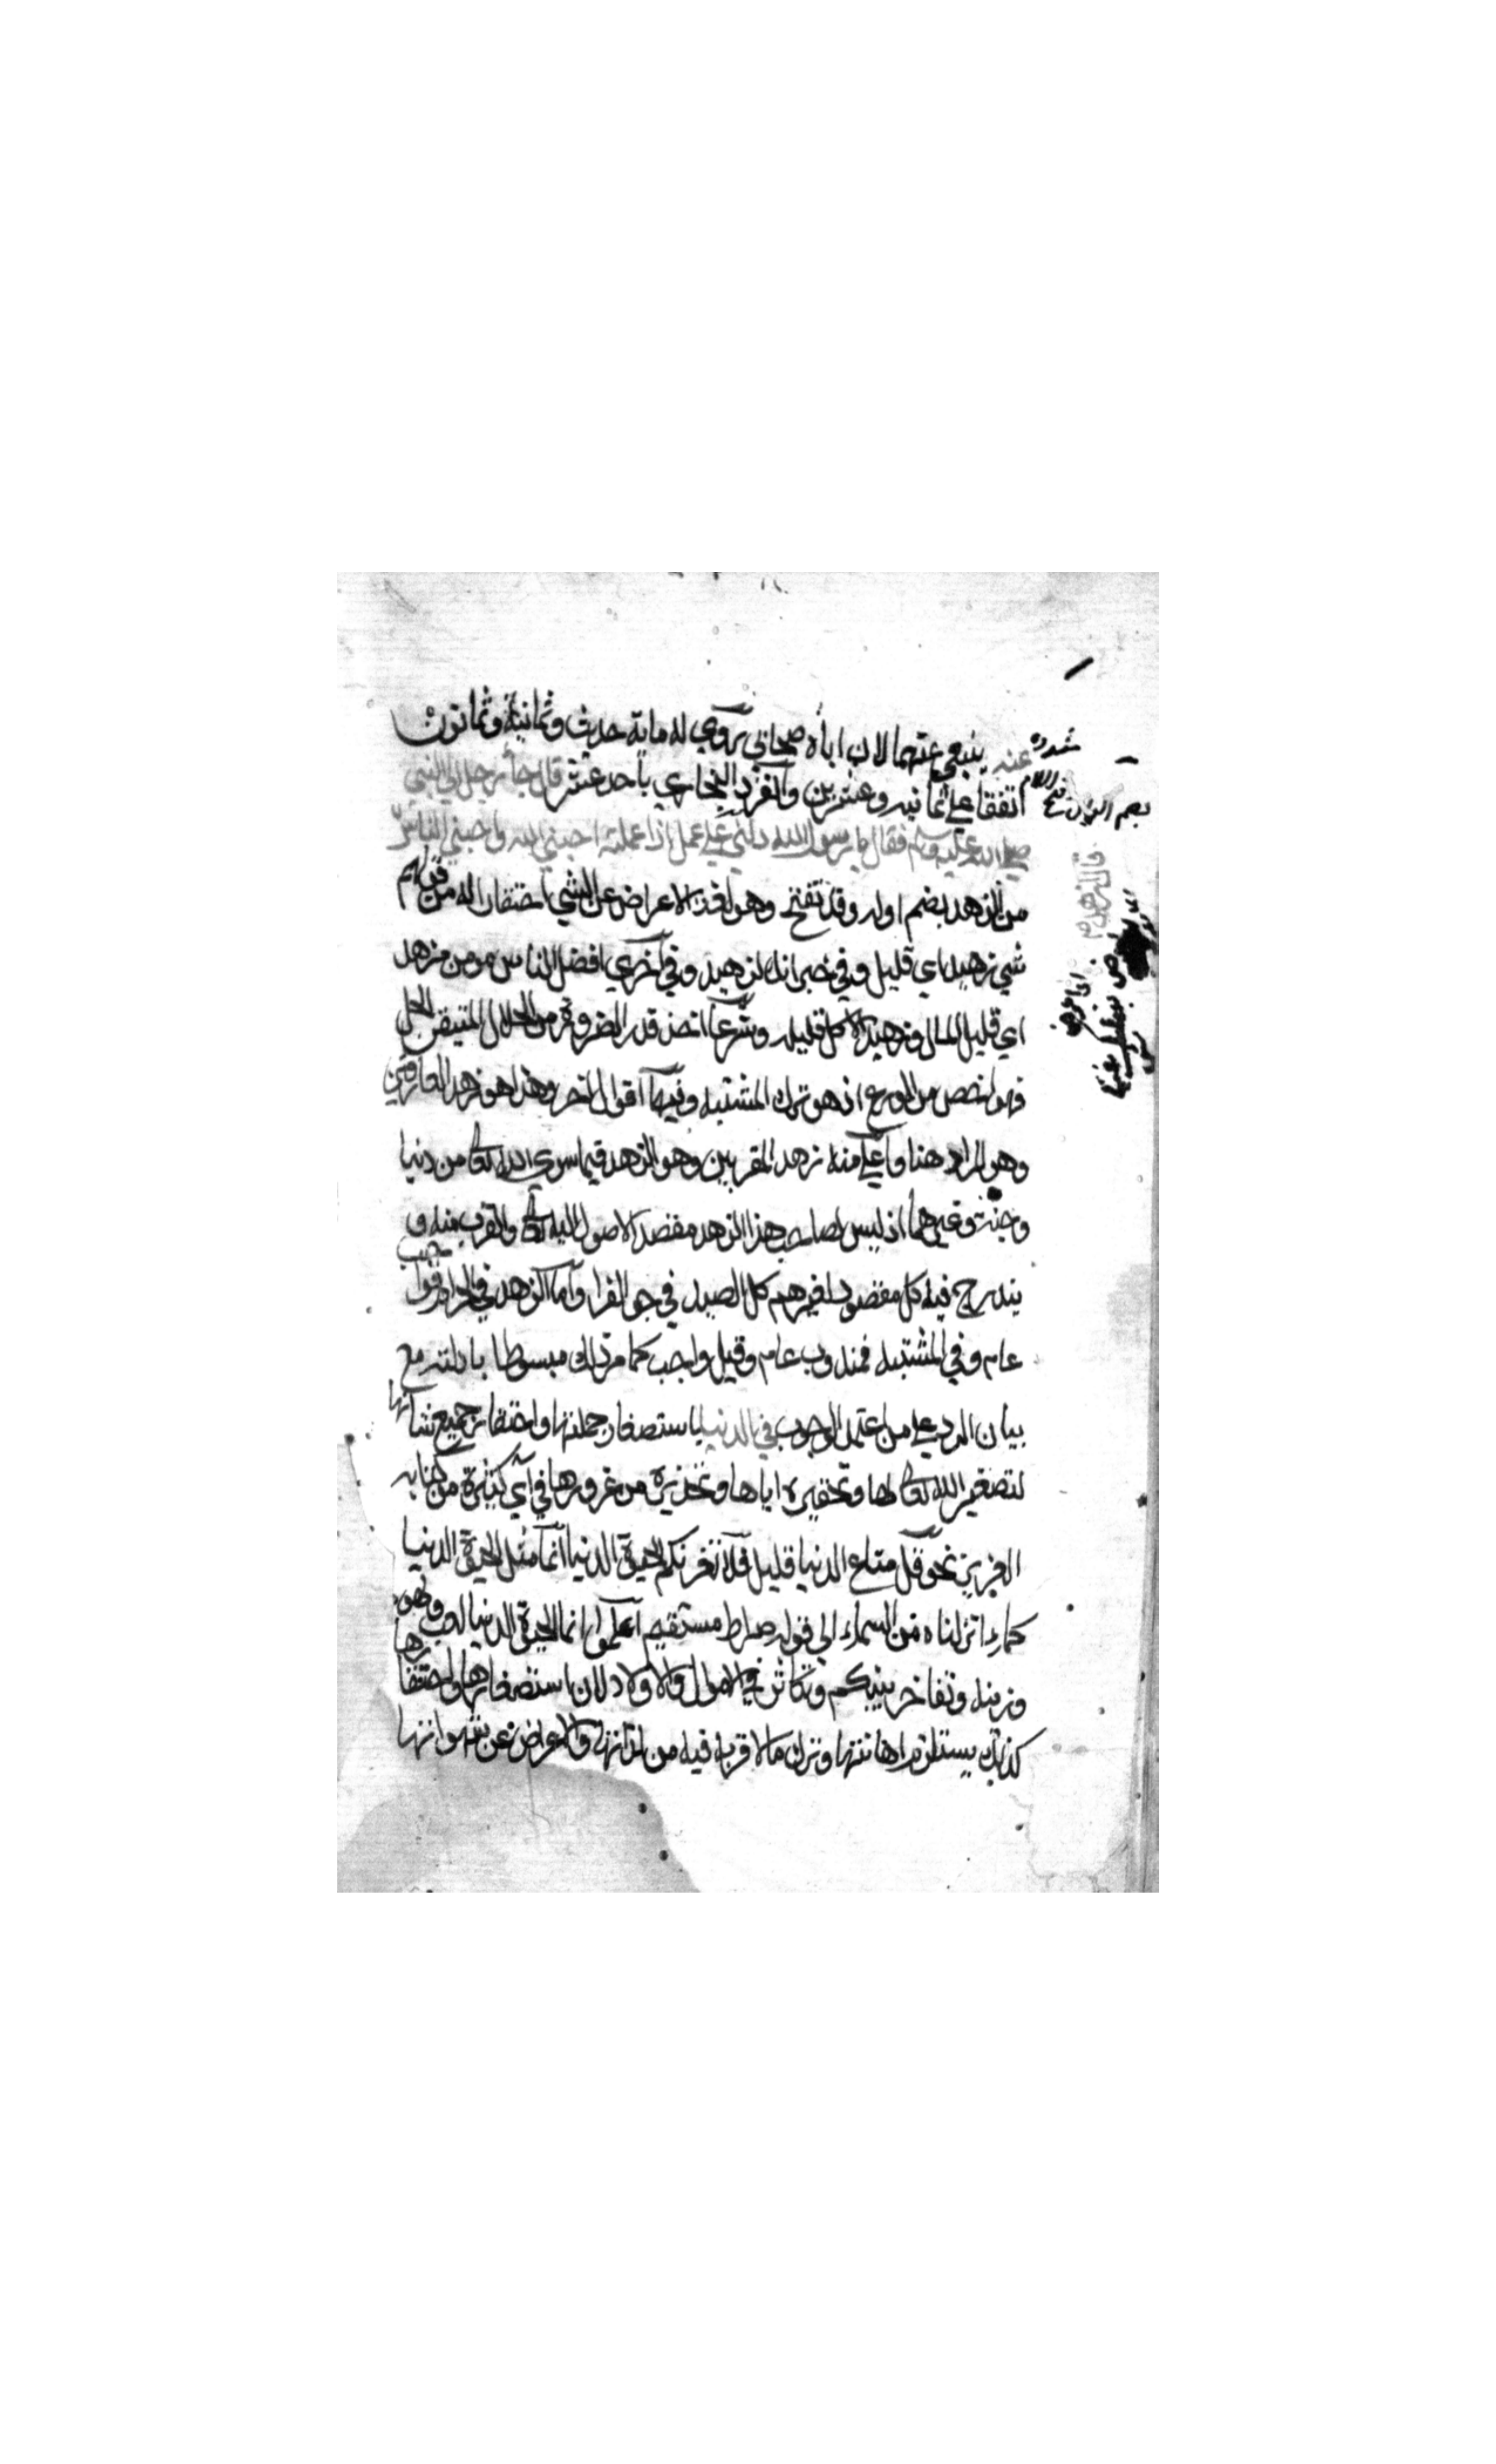 عنه ينبغي عنهما لان اباه صحابي روي له ماية حديث وثمانية وثمانون
اتفقا علي ثمانيه وعشرين وانفرد البخاري باحد عشر قال جا رجل الي النبي
صلي الله عليه وسلم فقال يا رسول الله دلني علي عمل اذا عملته احبني الله واحبني الناس
من الزهد بضم اوله وقد تفتح وهو لغة الاعراض عن الشي احتقارا له من قولهم
شي زهيد اي قليل وفي خبر انك لزهيد وفي اخري افضل الناس مومن مزهد
اي قليل المال وزهيد الاكل قليله وشرعا اخذ قدر الضرورة من الحلال المتيقن الحل
فهو اخص من الورع اذ هو ترك المشتبه وفيها اقوال اخر وهذا هو زهد العارفين
وهو المراد هنا واعلي منه زهد المقربين وهو الزهد فيما سوي الله تعالي من دنيا
وجنة وغيرهما اذ ليس لصاحب هذا الزهد مقصد الا الوصول اليه تعالي والقرب منه و
يندرج فيه كل مقصود لغيرهم كل الصيد في جوف الفرا واما الزهد في الحرام فواجب
عام وفي المشتبه فمندوب عام وقيل واجب كما مر ذلك مبسوطا بادلته مع
بيان الرد علي من اعتمد الوجوب في الدنيا باستصغار جملتها واحتقار جميع شانها
لتصغير الله تعالي لها وتحقيره اياها وتحذيره من غرورها في آي كثيرة من كتابه
العزيز نحو قل متاع الدنيا قليل فلا تغرنكم الحيوة الدنيا انما مثل الحيوة الدنيا
كماء انزلناه من السماء الي قوله صراط مستقيم اعلموا انما الحيوة الدنيا لعب ولهو
وزينة وتفاخر بينكم وتكاثر في الاموال والاولاد لان استصغارها واحتقارها
كذلك يستلزم اهانتها وترك ما لا قربة فيه من لذاتها والاعراض عن شهواتها